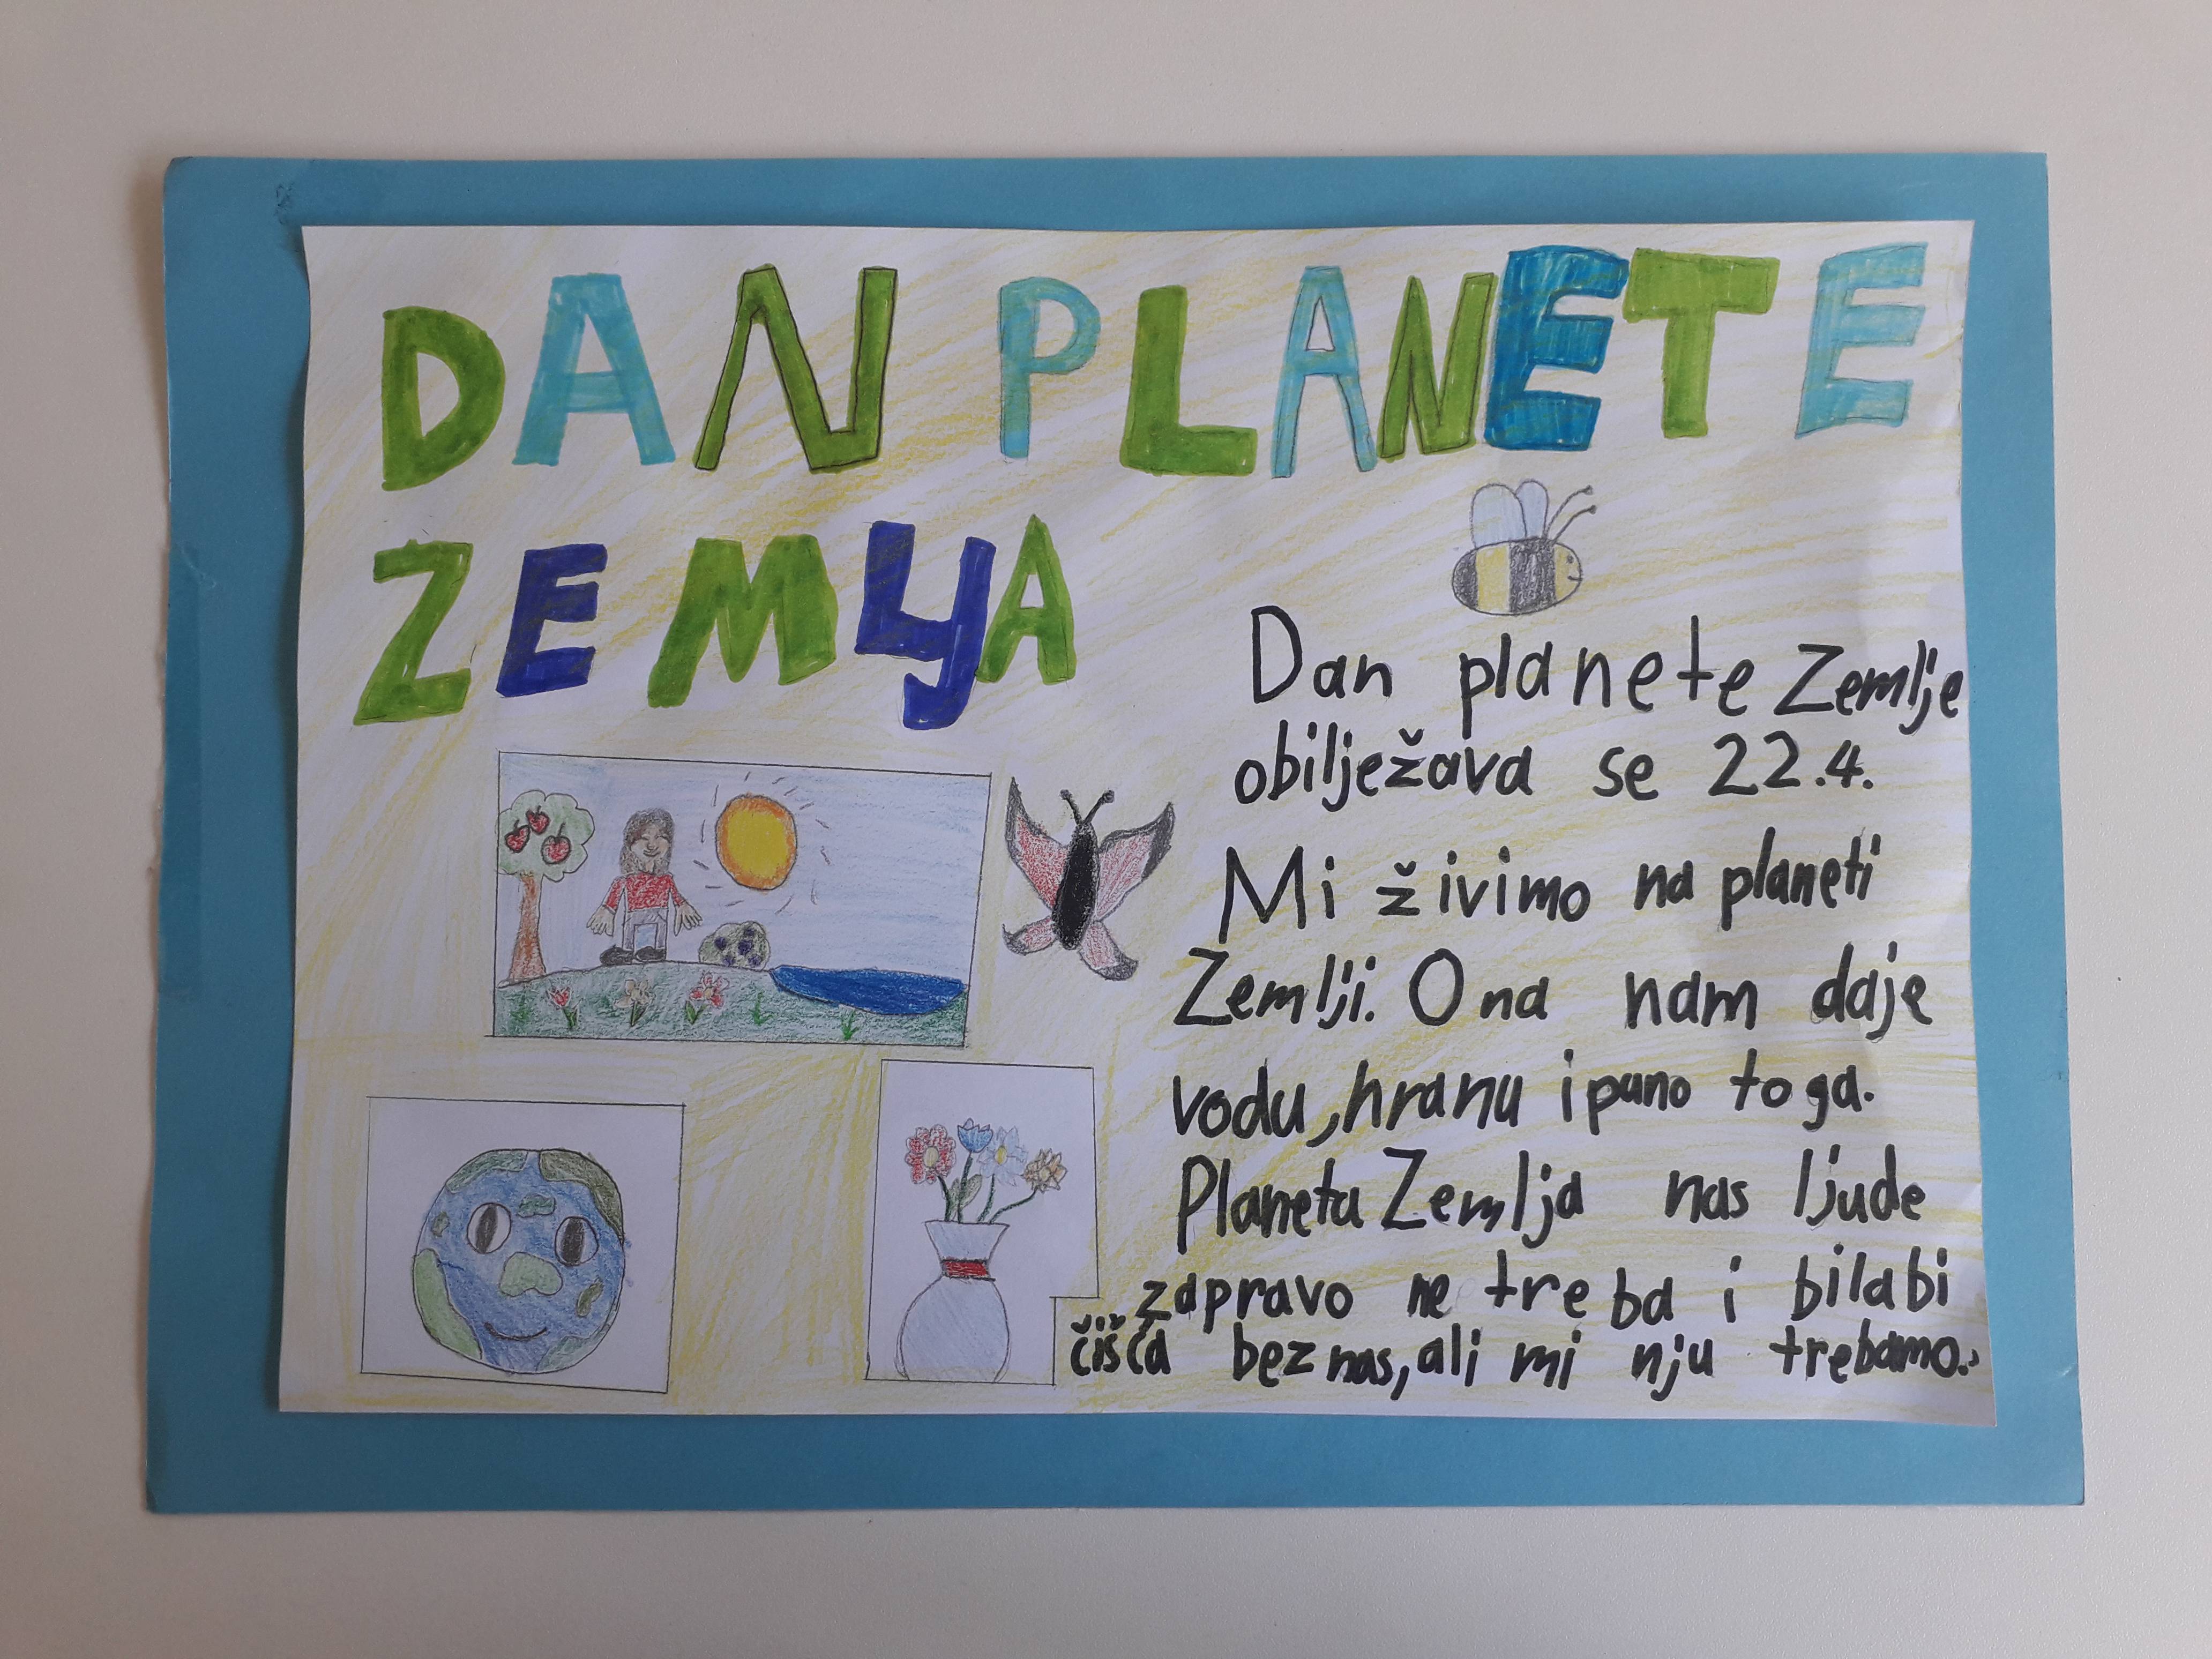 DAN PLANETE
ZEMLJA
Dan planete Zemlje
obilježava se 22.4.
Mi živimo na planeti
Zemlji. Ona nam daje
vodu, hranu i puno toga.
Planeta Zemlja nas ljude
zapravo ne treba i bila bi
čišća bez nas, ali mi nju trebamo.